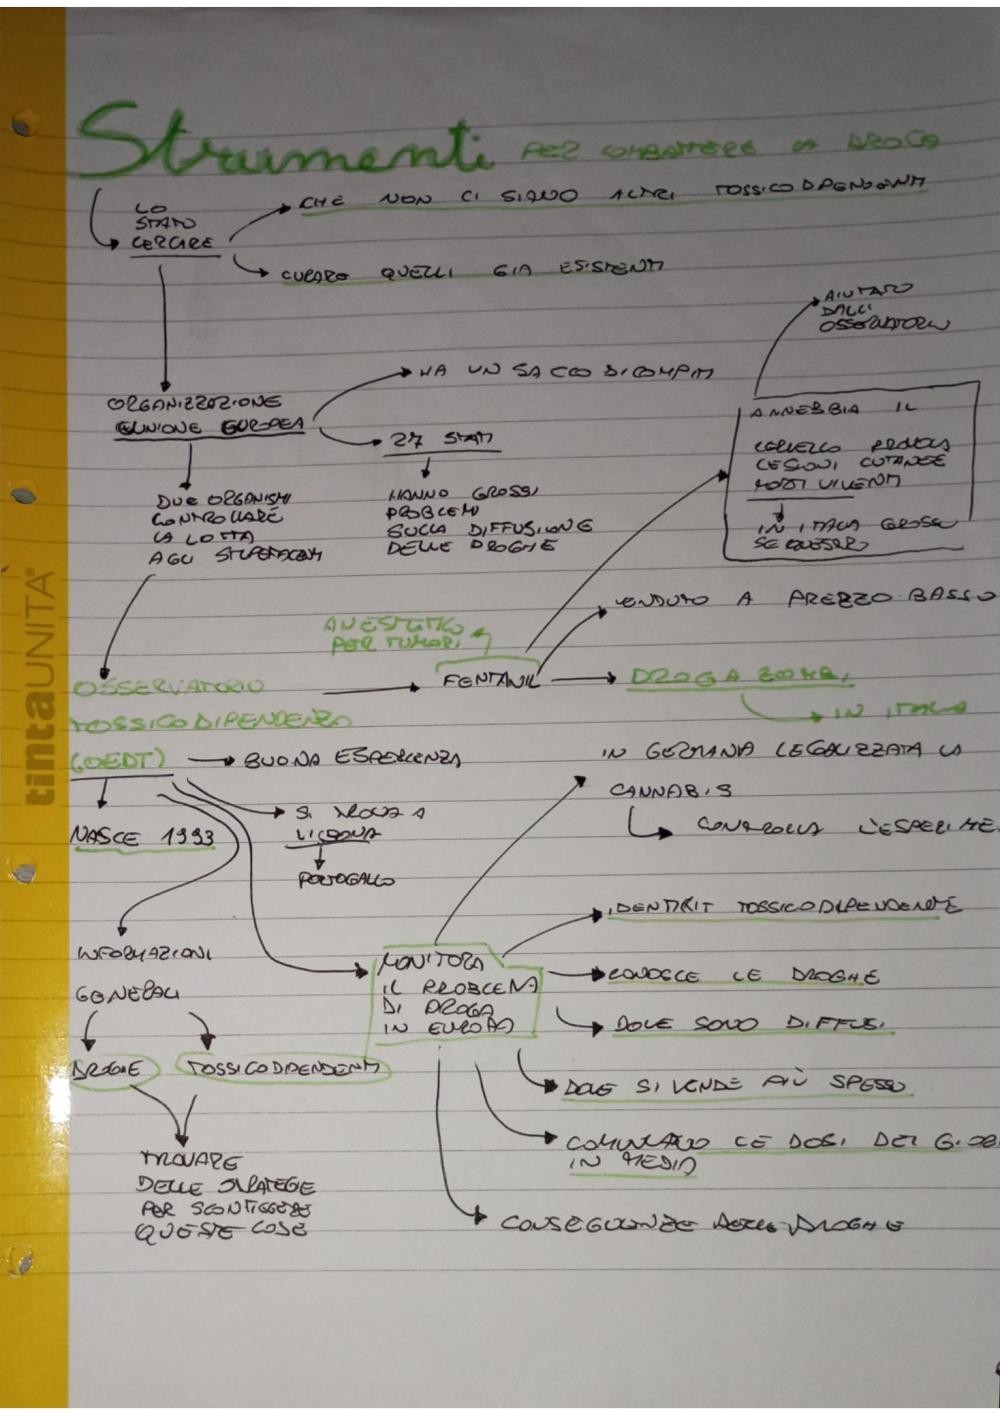 Strumenti PER COMBATTERE LA DROGA
LO
STATO
CERCARE
CHE NON CI SIANO ALTRI TOSSICODIPENDENTI
CURARE QUELLI GIA ESISTENTI
AIUTATO
DAGLI
OSSERVATORI
ORGANIZZAZIONE
UNIONE EUROPEA
HA UN SACCO DI COMPITI
27 STATI
HANNO GROSSI
PROBLEMI
SULLA DIFFUSIONE
DELLE DROGHE
ANNEBBIA IL
CERVELLO PROVOCA
LESIONI CUTANEE
MORTI VIVENTI
IN ITALIA GROSSI
SEQUESTRI
DUE ORGANISMI
CONTROLLARE
LA LOTTA
AGLI STUPEFACENTI
VENDUTO A PREZZO BASSO
ANESTETICO
PER TUMORI
OSSERVATORIO
TOSSICODIPENDENZE
(OEDT)
FENTANIL
DROGA ZOMBI
IN ITALIA
BUONA ESPERIENZA
NASCE 1993
SI TROVA A
LISBONA
PORTOGALLO
IN GERMANIA LEGALIZZATA LA
CANNABIS
CONTROLLA L'ESPERIME
INFORMAZIONI
GENERALI
DROGHE
TOSSICODIPENDENTI
TROVARE
DELLE STRATEGIE
PER SCONFIGGERE
QUESTE COSE
MONITORA
IL PROBLEMA
DI DROGA
IN EUROPA
IDENTIKIT TOSSICODIPENDENTE
CONOSCE LE DROGHE
DOVE SONO DIFFUSI
DOVE SI VENDE PIÙ SPESSO
LE DOSI DEI
IN MEDIA
CONSEGUENZE DELLE DROGHE
tintaUNITA